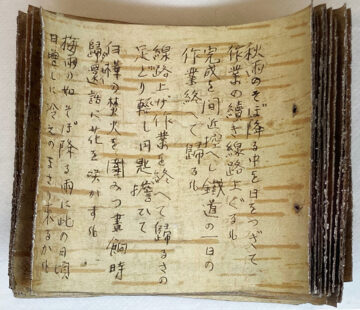 秋雨のそぼ降る中を日をつぎて
作業の續き線路上ぐるも
完成を間近控へし鐵道の一日の
作業終へて帰るも
線路上げ作業を終へて歸るさの
足どり輕し円匙擔ひて
白樺の焚火を圍みつ晝餉時
歸還話に花を咲かすも
梅雨の如そぼ降る雨に此の日頃
日増しに冷えのまさり来るかも